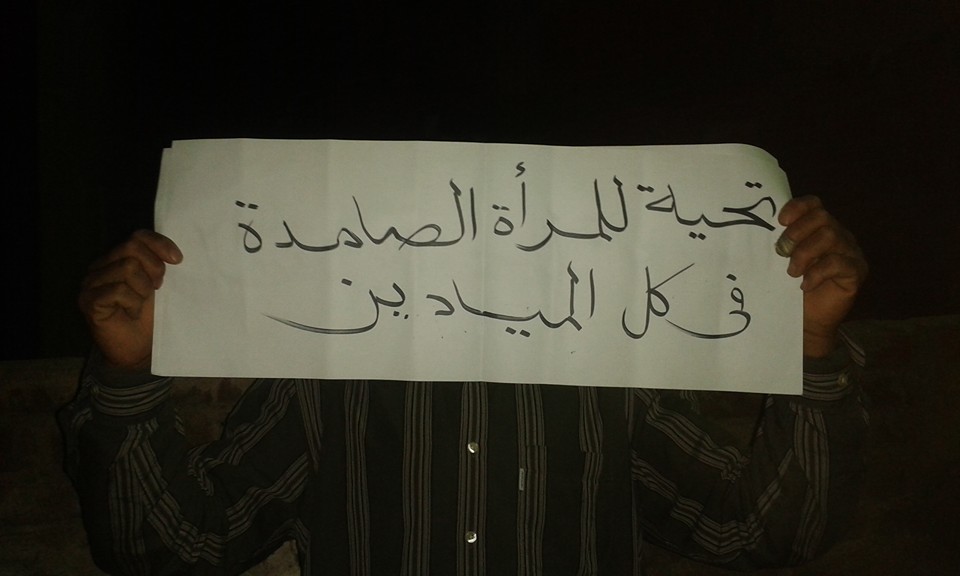 تحية للمرأة الصامدة
فى كل الميادين